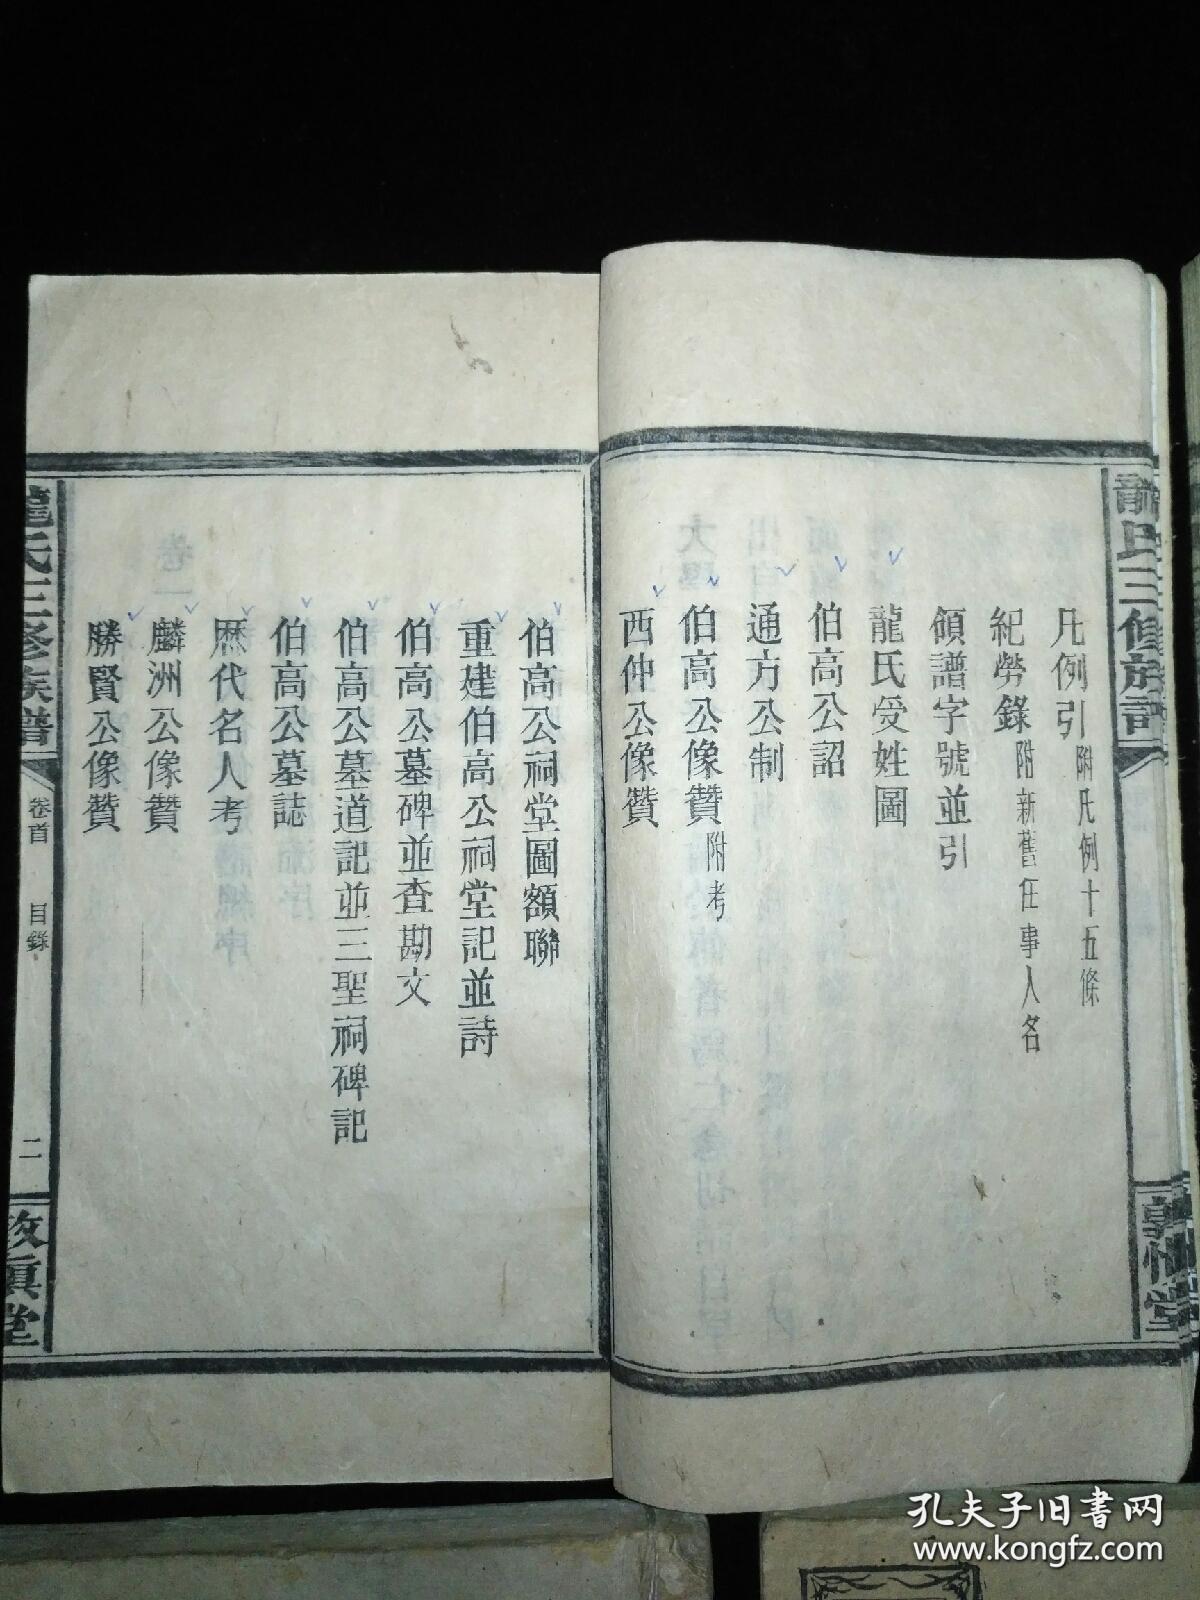 凡例引 附凡例十五條
紀勞錄 附新舊任事人名
領譜字號並引
龍氏受姓圖
伯高公詔
通方公制
伯高公像贊 附考
西仲公像贊
伯高公祠堂圖額聯
重建伯高公祠堂記並詩
伯高公墓碑並查勘文
伯高公墓道記並三聖祠碑記
伯高公墓誌
歷代名人考
麟洲公像贊
勝賢公像贊
龍氏三修族譜
卷首
目錄
二
敦厚堂
孔夫子旧书网
www.kongfz.com